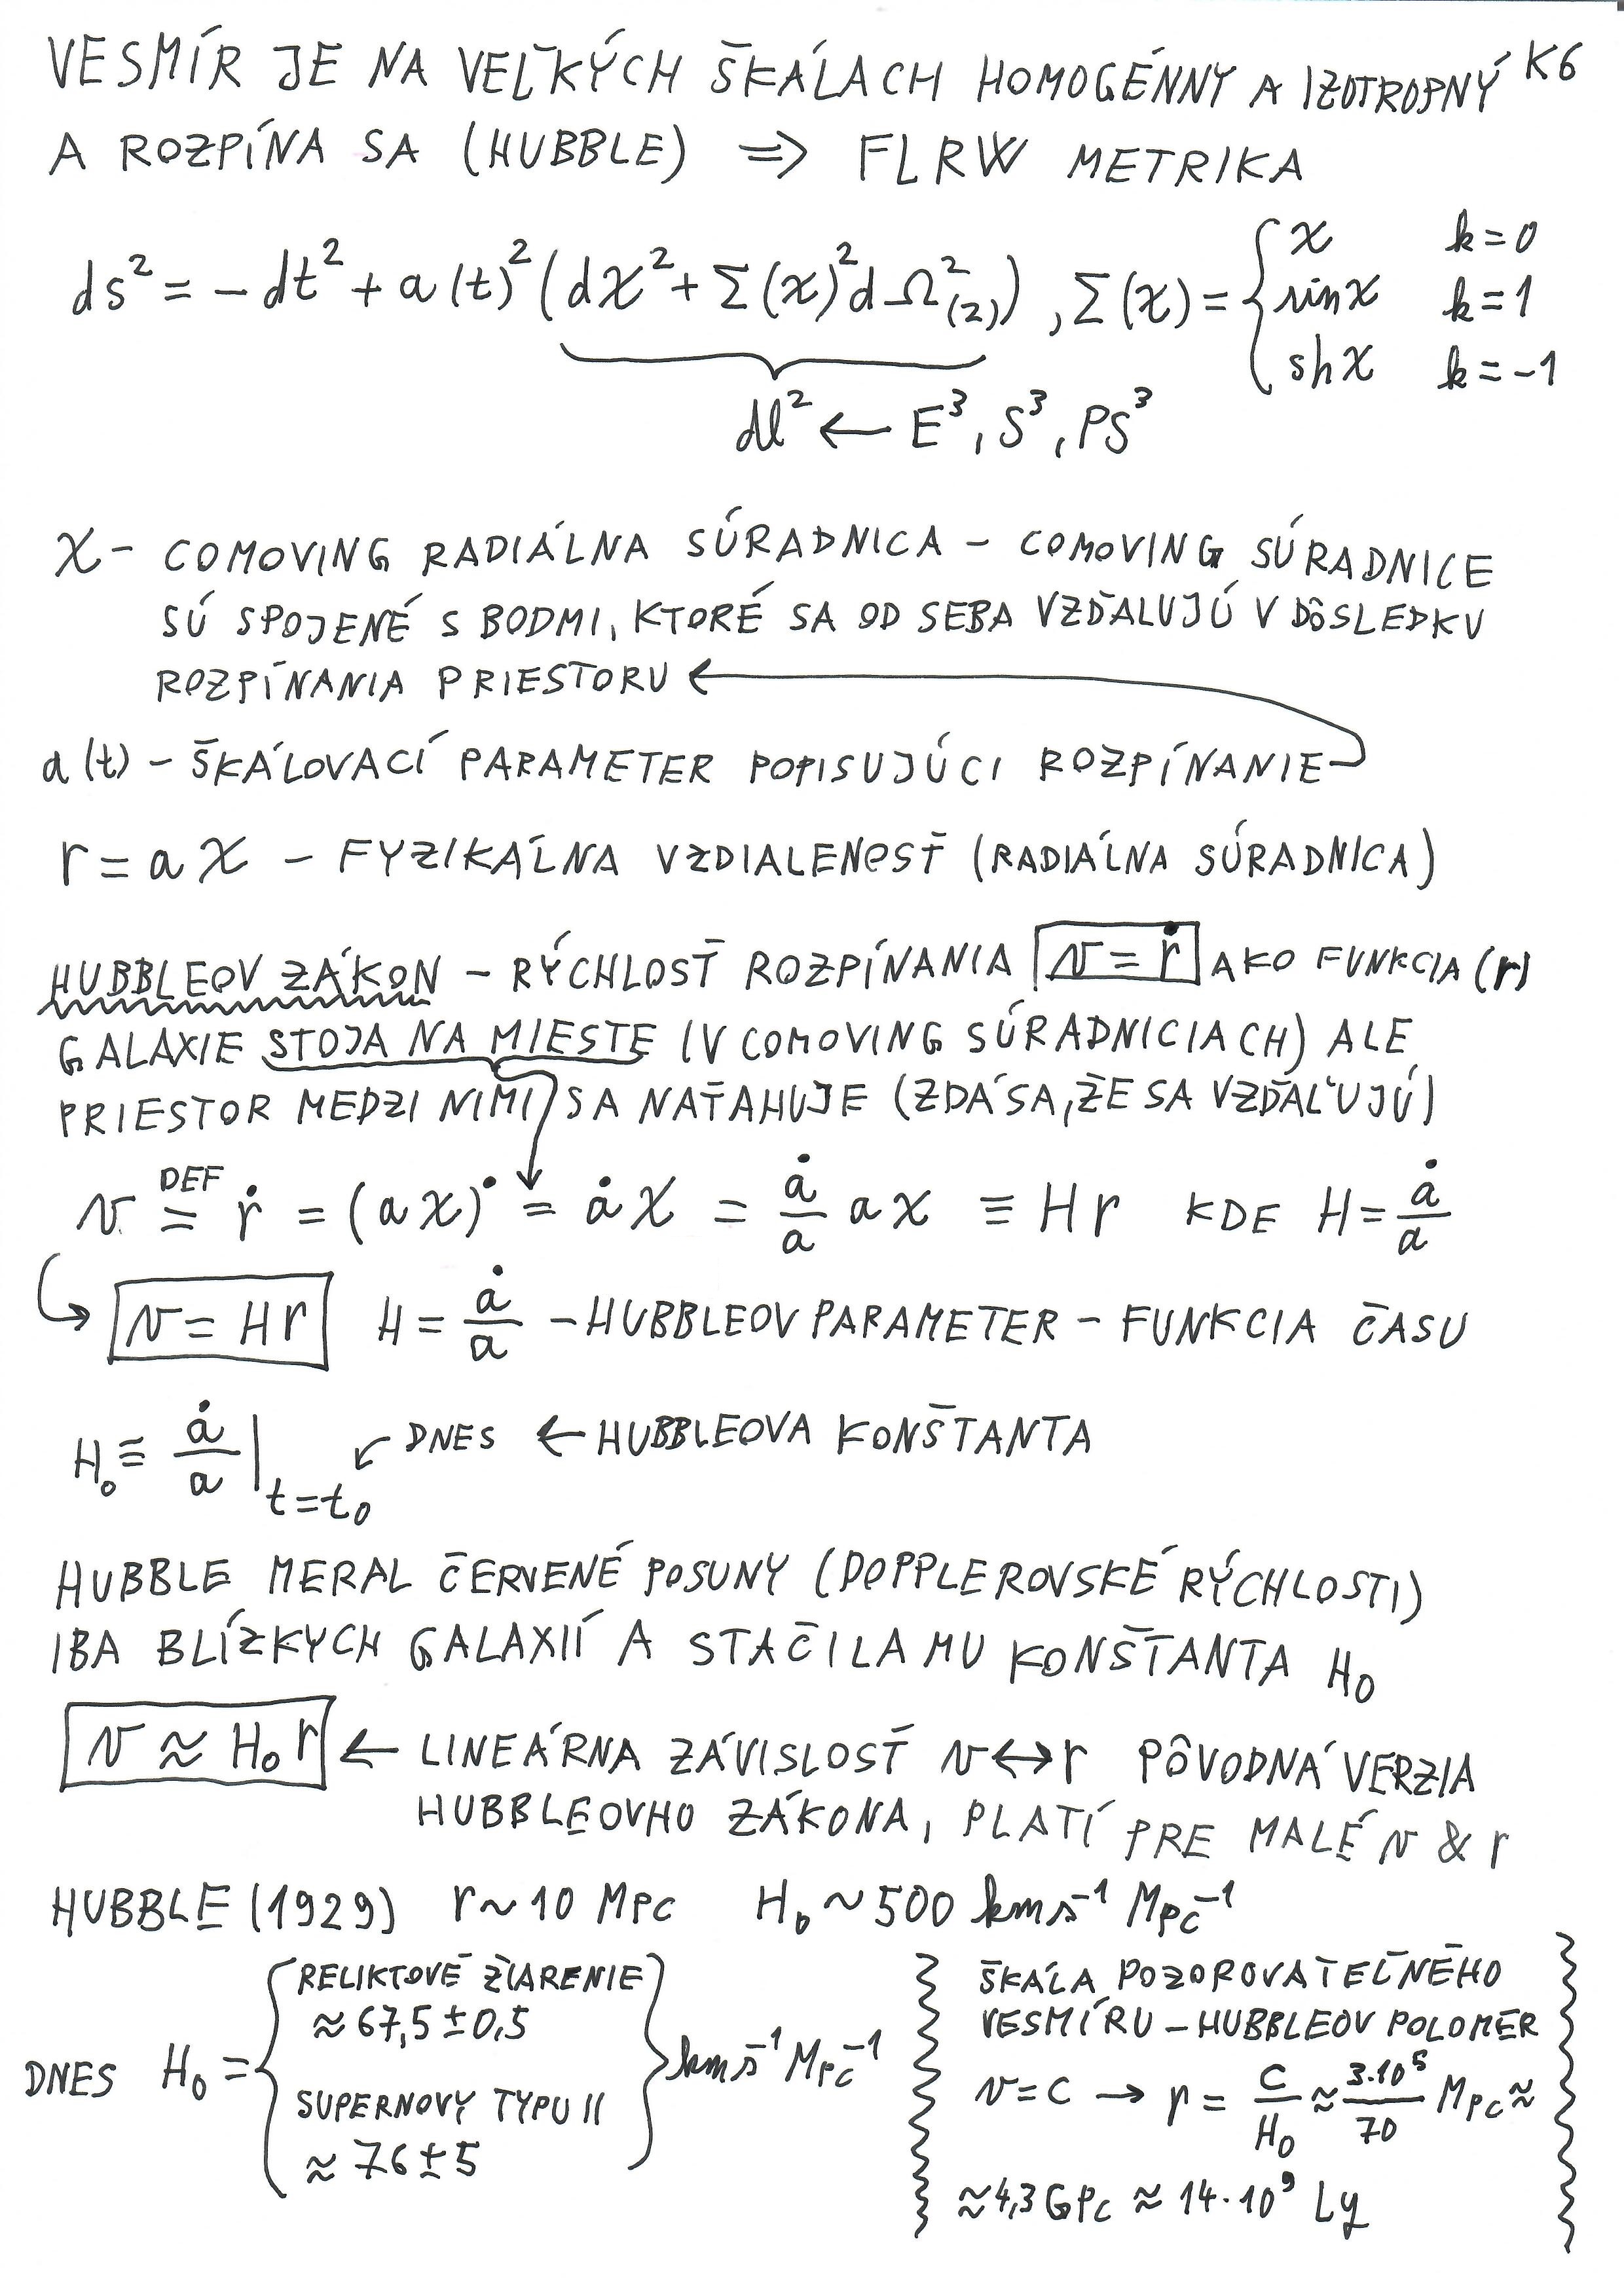 VESMÍR JE NA VEĽKÝCH ŠKÁLACH HOMOGÉNNY A IZOTROPNÝ K6
A ROZPÍNA SA (HUBBLE) ⇒ FLRW METRIKA
ds² = −dt² + a(t)² (dχ² + Σ(χ)² dΩ²₍₂₎) , Σ(χ) = { χ k=0
sinχ k=1
shχ k=−1
dl² ← E³, S³, PS³
χ – COMOVING RADIÁLNA SÚRADNICA – COMOVING SÚRADNICE
SÚ SPOJENÉ S BODMI, KTORÉ SA OD SEBA VZĎALUJÚ V DÔSLEDKU
ROZPÍNANIA PRIESTORU ←
a(t) – ŠKÁLOVACÍ PARAMETER POPISUJÚCI ROZPÍNANIE
r = aχ – FYZIKÁLNA VZDIALENOSŤ (RADIÁLNA SÚRADNICA)
HUBBLEOV ZÁKON – RÝCHLOSŤ ROZPÍNANIA v = ṙ AKO FUNKCIA (r)
GALAXIE STOJA NA MIESTE (V COMOVING SÚRADNICIACH) ALE
PRIESTOR MEDZI NIMI SA NAŤAHUJE (ZDÁ SA, ŽE SA VZĎAĽUJÚ)
v DEF= ṙ = (aχ)˙ = ȧχ = ȧ/a aχ ≡ Hr KDE H = ȧ/a
↪ v = Hr H = ȧ/a – HUBBLEOV PARAMETER – FUNKCIA ČASU
H₀ ≡ ȧ/a |t=t₀ ↙ DNES ← HUBBLEOVA KONŠTANTA
HUBBLE MERAL ČERVENÉ POSUNY (DOPPLEROVSKÉ RÝCHLOSTI)
IBA BLÍZKYCH GALAXIÍ A STAČILA MU KONŠTANTA H₀
v ≈ H₀r ← LINEÁRNA ZÁVISLOSŤ v ↔ r PÔVODNÁ VERZIA
HUBBLEOVHO ZÁKONA, PLATÍ PRE MALÉ v & r
HUBBLE (1929) r ~ 10 Mpc H₀ ~ 500 km s⁻¹ Mpc⁻¹
DNES H₀ = { RELIKTOVÉ ŽIARENIE
≈ 67,5 ± 0,5
SUPERNOVY TYPU II
≈ 76 ± 5 } km s⁻¹ Mpc⁻¹
ŠKÁLA POZOROVATEĽNÉHO
VESMÍRU – HUBBLEOV POLOMER
v = c → r = c/H₀ ≈ 3·10⁵/70 Mpc ≈
≈ 4,3 GPc ≈ 14·10⁹ Ly